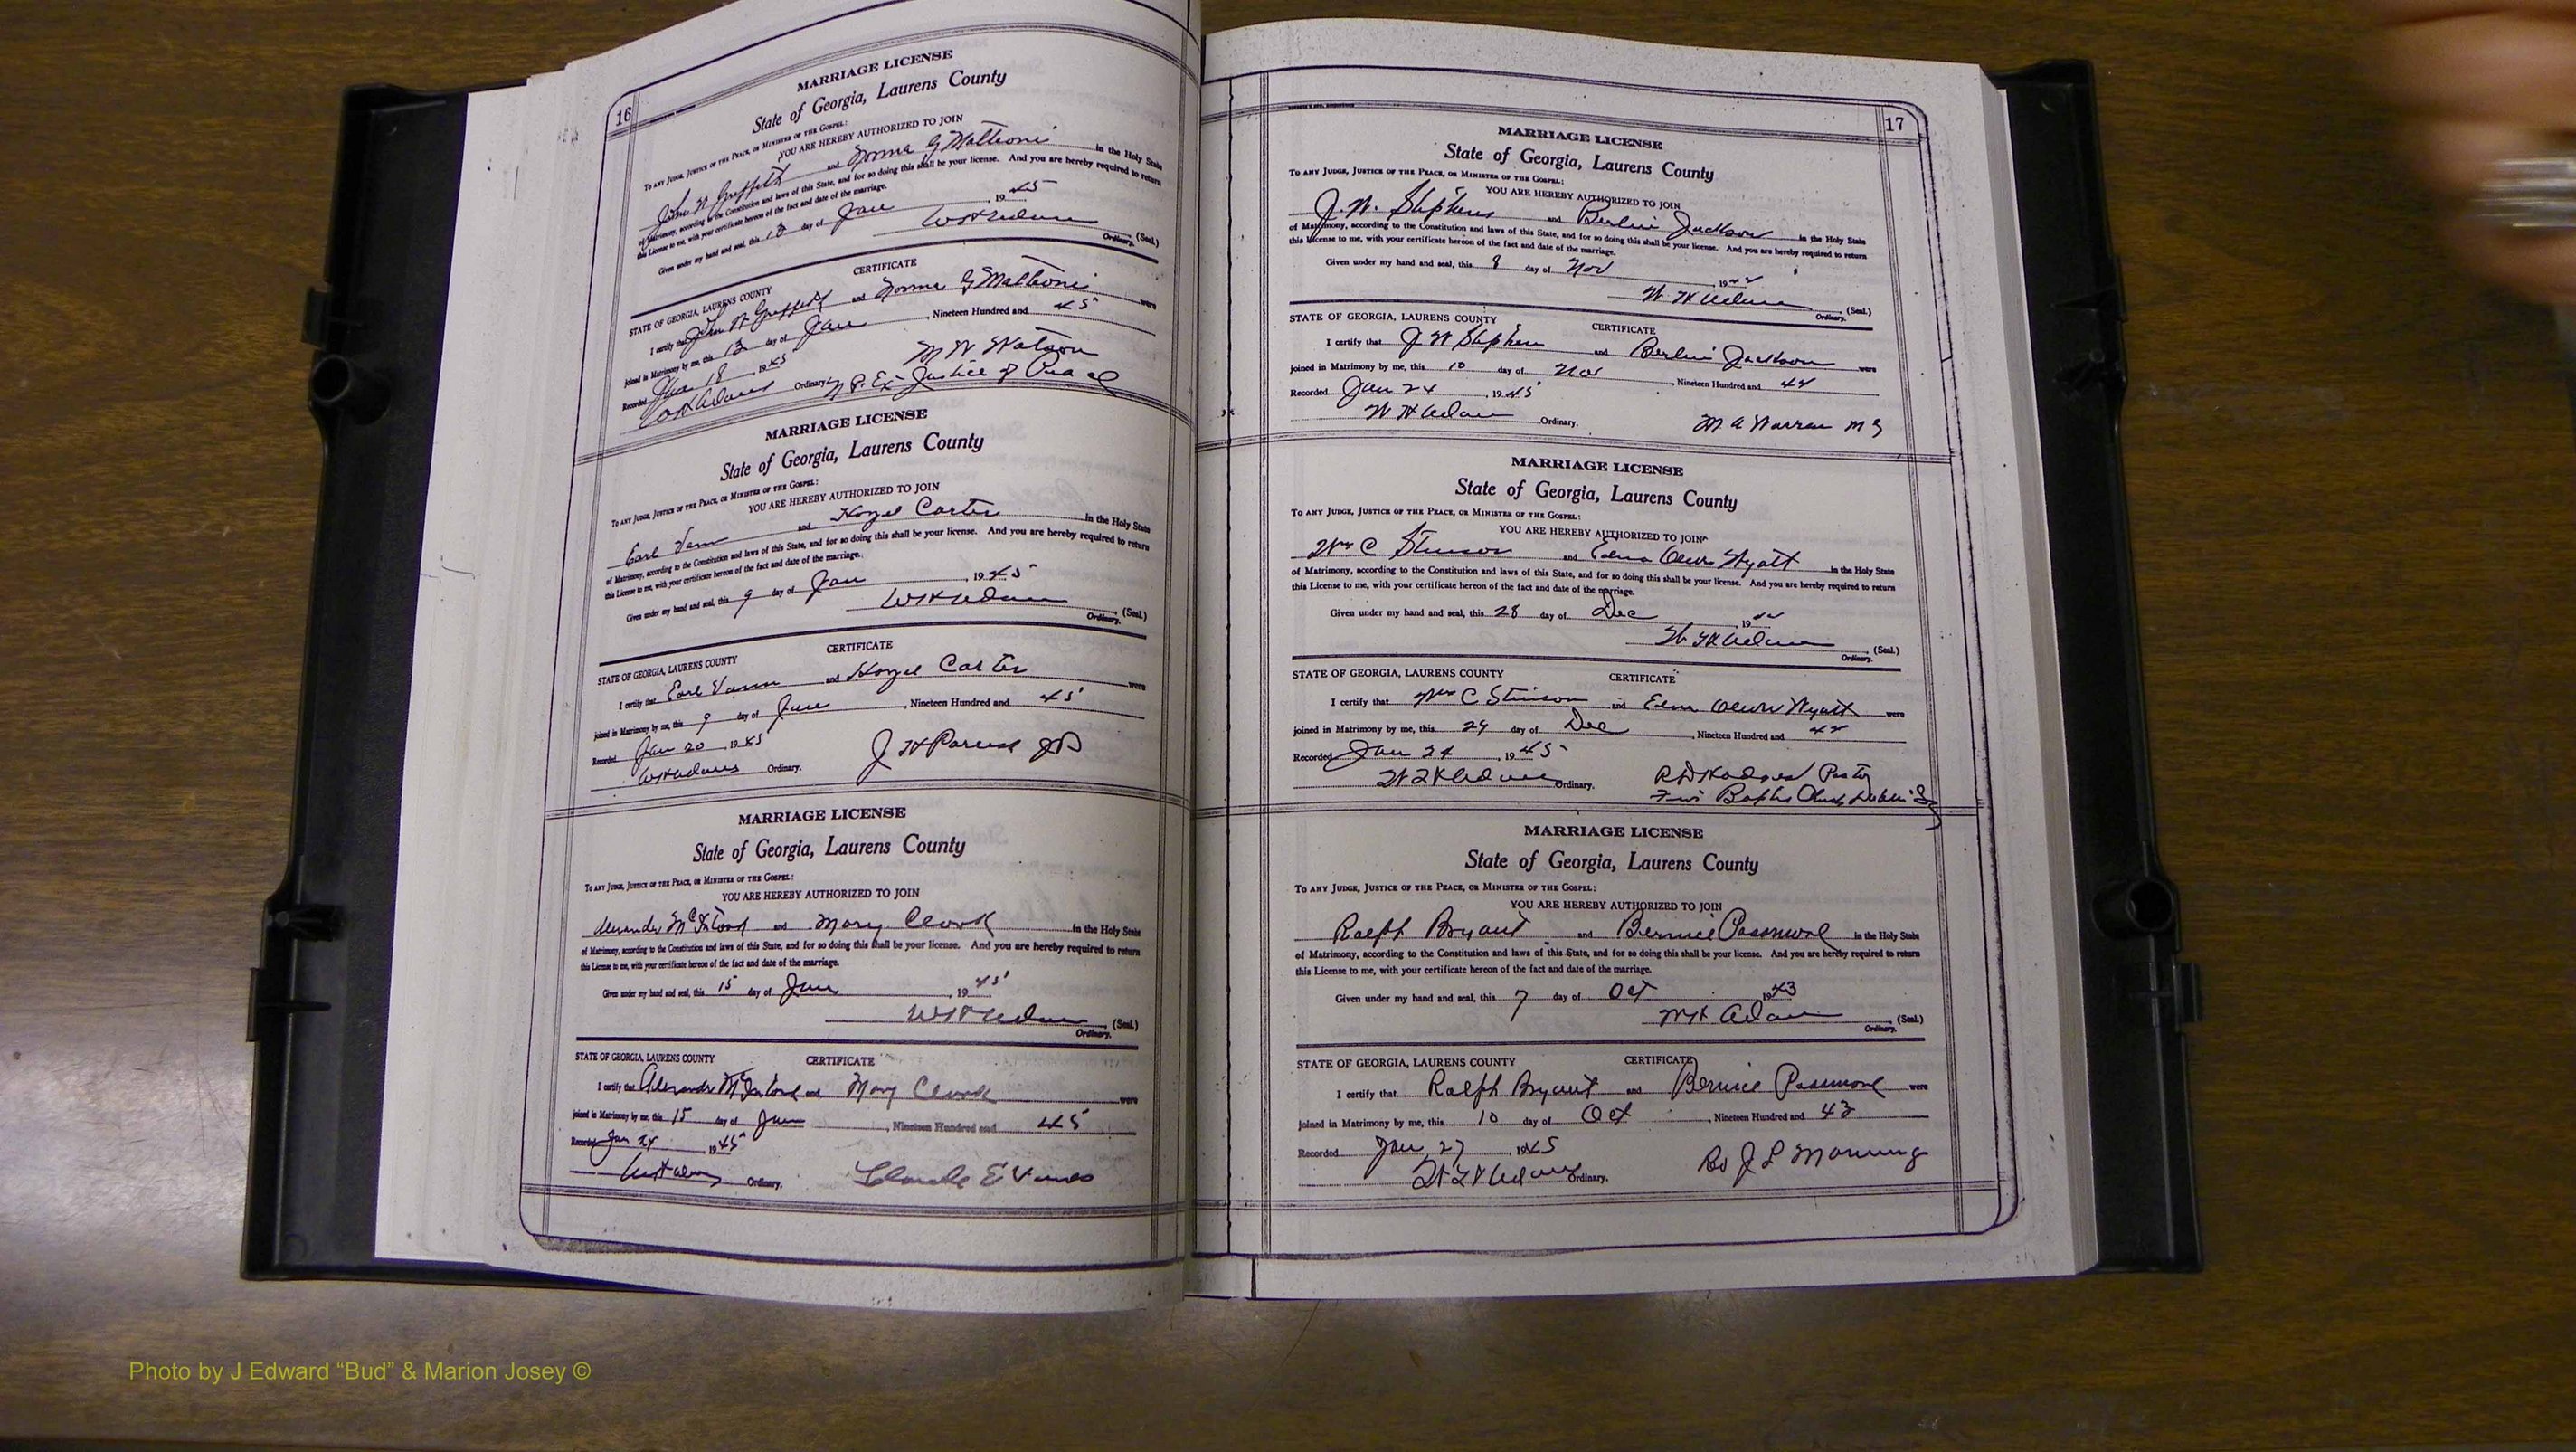 16
MARRIAGE LICENSE
State of Georgia, Laurens County
To any Judge, Justice of the Peace, or Minister of the Gospel:
YOU ARE HEREBY AUTHORIZED TO JOIN
John W Griffeth and Norma G Mathonis in the Holy State
of Matrimony, according to the Constitution and laws of this State, and for so doing this shall be your license. And you are hereby required to return
this License to me, with your certificate hereon of the fact and date of the marriage.
Given under my hand and seal, this 13 day of Jan 1945
W H Adams (Seal.)
Ordinary.
CERTIFICATE
STATE OF GEORGIA, LAURENS COUNTY
I certify that John W Griffeth and Norma G Mathonis were
joined in Matrimony by me, this 13 day of Jan, Nineteen Hundred and 45
Recorded Jan 18 1945 M W Watson
W H Adams Ordinary. N.P. Ex Justice of Peace
MARRIAGE LICENSE
State of Georgia, Laurens County
To any Judge, Justice of the Peace, or Minister of the Gospel:
YOU ARE HEREBY AUTHORIZED TO JOIN
Earl Vann and Hazel Carter in the Holy State
of Matrimony, according to the Constitution and laws of this State, and for so doing this shall be your license. And you are hereby required to return
this License to me, with your certificate hereon of the fact and date of the marriage.
Given under my hand and seal, this 9 day of Jan, 1945
W H Adams (Seal.)
Ordinary.
CERTIFICATE
STATE OF GEORGIA, LAURENS COUNTY
I certify that Earl Vann and Hazel Carter were
joined in Matrimony by me, this 9 day of Jan, Nineteen Hundred and 45
Recorded Jan 20 1945
W H Adams Ordinary. J H
MARRIAGE LICENSE
State of Georgia, Laurens County
To any Judge, Justice of the Peace, or Minister of the Gospel:
YOU ARE HEREBY AUTHORIZED TO JOIN
Alexander and Mary Clark in the Holy State
of Matrimony, according to the Constitution and laws of this State, and for so doing this shall be your license. And you are hereby required to return
this License to me, with your certificate hereon of the fact and date of the marriage.
Given under my hand and seal, this 15 day of Jan, 1945
W H Adams (Seal.)
Ordinary.
STATE OF GEORGIA, LAURENS COUNTY CERTIFICATE
I certify that Alexander and Mary Clark were
joined in Matrimony by me, this 15 day of Jan, Nineteen Hundred and 45
Recorded Jan 24 1945
W H Adams Ordinary. Claude E
17
MARRIAGE LICENSE
State of Georgia, Laurens County
To any Judge, Justice of the Peace, or Minister of the Gospel:
YOU ARE HEREBY AUTHORIZED TO JOIN
J. W. Stephens and Berlin Jackson in the Holy State
of Matrimony, according to the Constitution and laws of this State, and for so doing this shall be your license. And you are hereby required to return
this License to me, with your certificate hereon of the fact and date of the marriage.
Given under my hand and seal, this 8 day of Nov, 1944
W H Adams (Seal.)
Ordinary.
STATE OF GEORGIA, LAURENS COUNTY CERTIFICATE
I certify that J W Stephens and Berlin Jackson were
joined in Matrimony by me, this 10 day of Nov, Nineteen Hundred and 44
Recorded Jan 24, 1945
W H Adams Ordinary. M A Warren M G
MARRIAGE LICENSE
State of Georgia, Laurens County
To any Judge, Justice of the Peace, or Minister of the Gospel:
YOU ARE HEREBY AUTHORIZED TO JOIN
Wm C Stinson and Edna Wyatt in the Holy State
of Matrimony, according to the Constitution and laws of this State, and for so doing this shall be your license. And you are hereby required to return
this License to me, with your certificate hereon of the fact and date of the marriage.
Given under my hand and seal, this 28 day of Dec, 1944
W H Adams (Seal.)
Ordinary.
STATE OF GEORGIA, LAURENS COUNTY CERTIFICATE
I certify that Wm C Stinson and Wyatt were
joined in Matrimony by me, this 29 day of Dec, Nineteen Hundred and 44
Recorded Jan 24, 1945
W H Adams Ordinary. Pastor
MARRIAGE LICENSE
State of Georgia, Laurens County
To any Judge, Justice of the Peace, or Minister of the Gospel:
YOU ARE HEREBY AUTHORIZED TO JOIN
Ralph Bryant and Bernice Passmore in the Holy State
of Matrimony, according to the Constitution and laws of this State, and for so doing this shall be your license. And you are hereby required to return
this License to me, with your certificate hereon of the fact and date of the marriage.
Given under my hand and seal, this 7 day of Oct 1943
W H Adams (Seal.)
Ordinary.
STATE OF GEORGIA, LAURENS COUNTY CERTIFICATE
I certify that Ralph Bryant and Bernice Passmore were
joined in Matrimony by me, this 10 day of Oct, Nineteen Hundred and 43
Recorded Jan 27, 1945
W H Adams Ordinary. J L Manning
Photo by J Edward “Bud” & Marion Josey ©